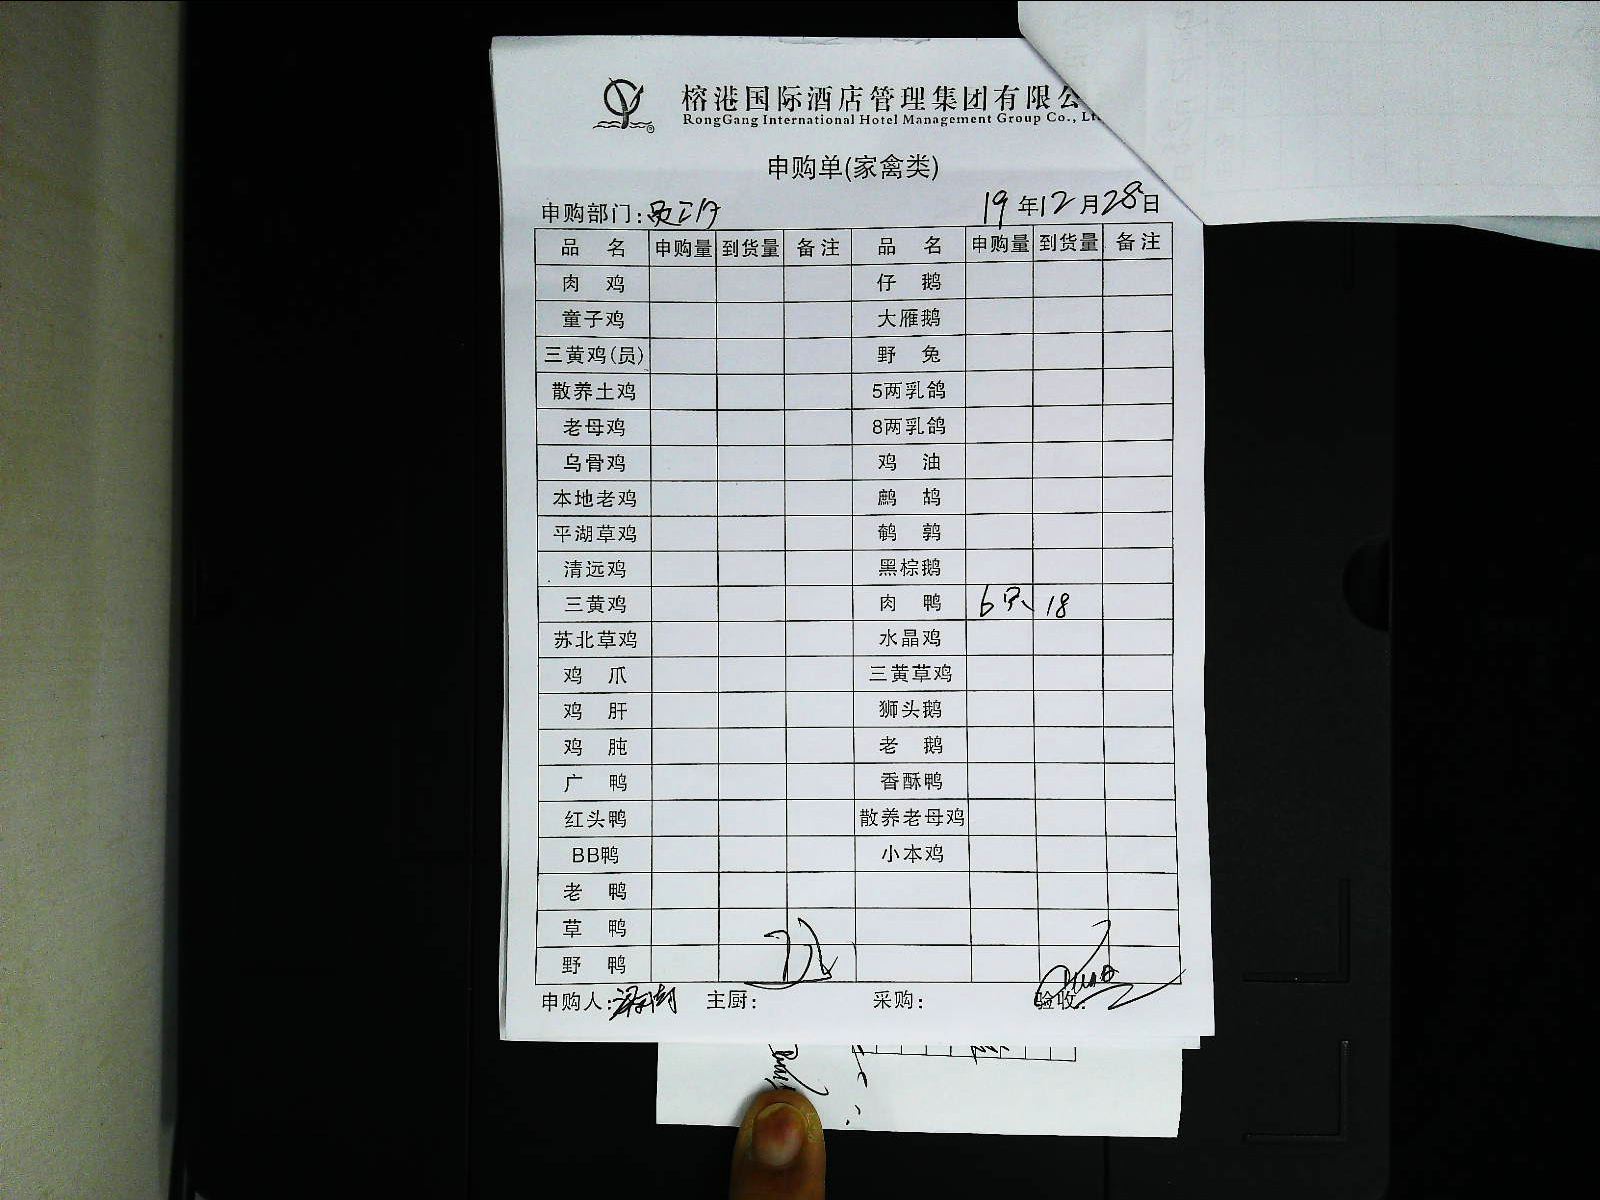 榕港国际酒店管理集团有限公
RongGang International Hotel Management Group Co., Lt
申购单(家禽类)
申购部门: 员工 19年12月28日
品 名 申购量 到货量 备注 品 名 申购量 到货量 备注
肉 鸡 仔 鹅
童子鸡 大雁鹅
三黄鸡(员) 野 兔
散养土鸡 5两乳鸽
老母鸡 8两乳鸽
乌骨鸡 鸡 油
本地老鸡 鹧 鸪
平湖草鸡 鹌 鹑
清远鸡 黑棕鹅
三黄鸡 肉 鸭 6只 18
苏北草鸡 水晶鸡
鸡 爪 三黄草鸡
鸡 肝 狮头鹅
鸡 肫 老 鹅
广 鸭 香酥鸭
红头鸭 散养老母鸡
BB鸭 小本鸡
老 鸭
草 鸭
野 鸭
申购人: 主厨: 采购: 验收: